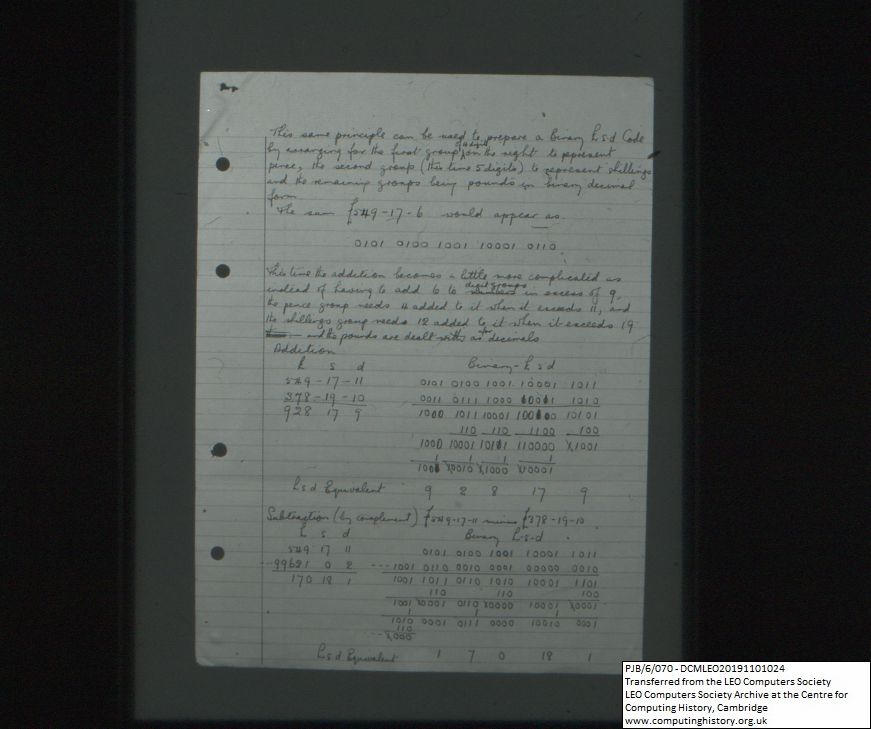 This same principle can be used to prepare a Binary £ s d Code
by arranging for the first group of 4 digits on the right to represent
pence, the second group (this time 5 digits) to represent shillings
and the remaining groups being pounds in binary decimal
form.
The sum £549-17-6 would appear as.
0101 0100 1001 10001 0110
This time the addition becomes a little more complicated as
instead of having to add 6 to digit groups in excess of 9,
the pence group needs 4 added to it when it exceeds 11, and
the shillings group needs 12 added to it when it exceeds 19
and the pounds are dealt with as for decimals
Addition
£ s d Binary - £ s d
549-17-11 0101 0100 1001 10001 1011
378-19-10 0011 0111 1000 10011 1010
928 17 9 1000 1011 10001 100100 10101
110 110 1100 100
1000 10001 10111 110000 11001
1 1 1 1
1001 10010 11000 110001
£ s d Equivalent 9 2 8 17 9
Subtraction (by complement) £549-17-11 minus £378-19-10.
£ s d Binary £-s-d
549 17 11 0101 0100 1001 10001 1011
99621 0 2 ---1001 0110 0010 0001 00000 0010
170 18 1 1001 1011 0110 1010 10001 1101
110 110 100
1001 10001 0110 10000 10001 10001
1 1 1
1010 0001 0111 0000 10010 0001
110
£ s d Equivalent 1 7 0 18 1
PJB/6/070 - DCMLEO20191101024
Transferred from the LEO Computers Society
LEO Computers Society Archive at the Centre for
Computing History, Cambridge
www.computinghistory.org.uk